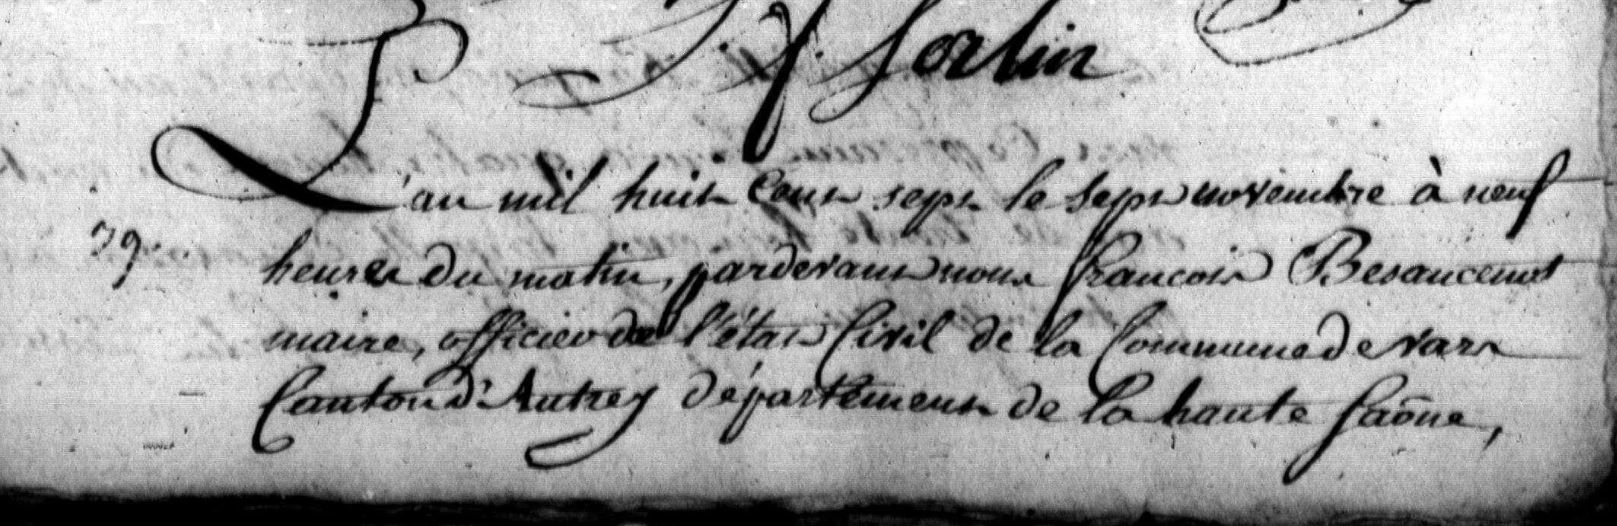 J. Sorlin
L'an mil huit Cent sept le Sept novembre à neuf
79.
heures du matin, pardevant nous francois Besancenot
maire, officier de l'état Civil de la Commune de vars
Canton d'Autrey département de la haute Saône,